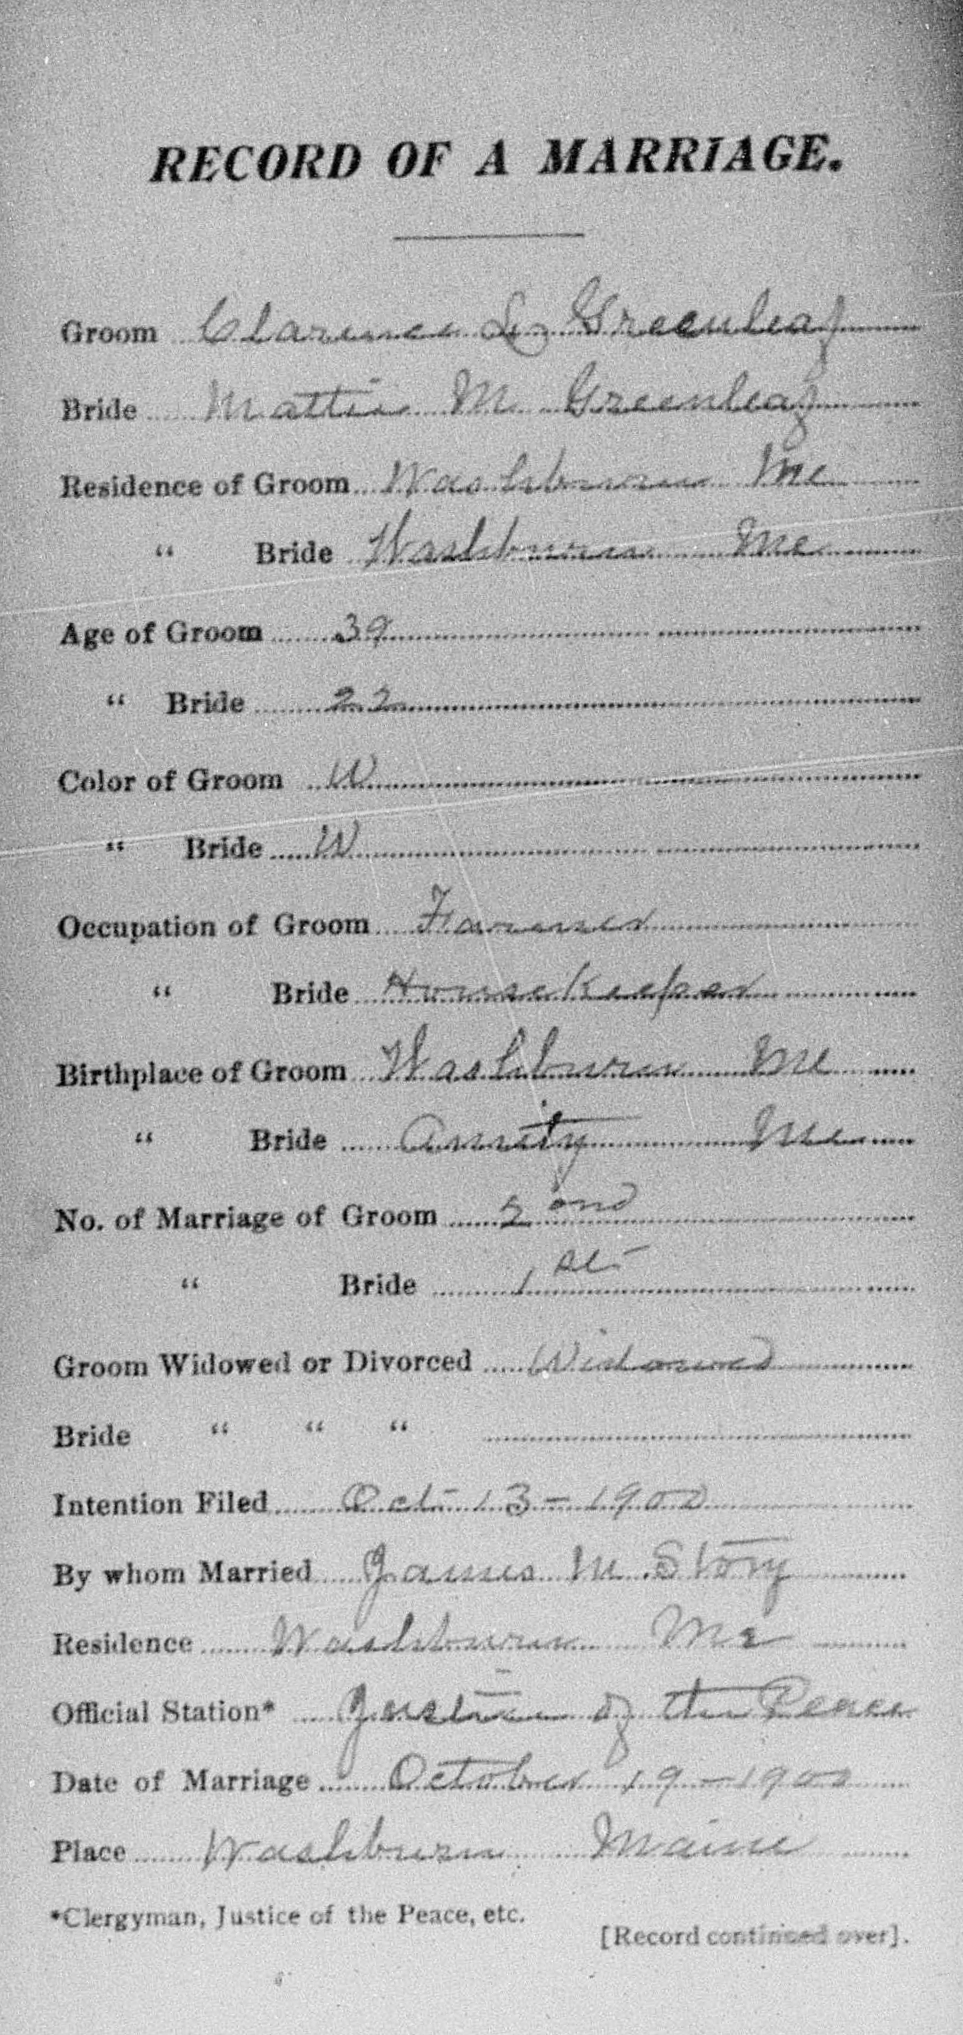 RECORD OF A MARRIAGE.
Groom Clarence L. Greenleaf
Bride Mattie M Greenleaf
Residence of Groom Washburn Me
" Bride Washburn Me
Age of Groom 39
" Bride 22
Color of Groom W
" Bride W
Occupation of Groom Farmer
" Bride Housekeeper
Birthplace of Groom Washburn Me
" Bride Amity Me
No. of Marriage of Groom 2ond
" Bride 1st
Groom Widowed or Divorced Widowed
Bride " " "
Intention Filed Oct-13-1900
By whom Married James M Story
Residence Washburn Me
Official Station* Justice of the Peace
Date of Marriage October 19-1900
Place Washburn Maine
*Clergyman, Justice of the Peace, etc.
[Record continued over].